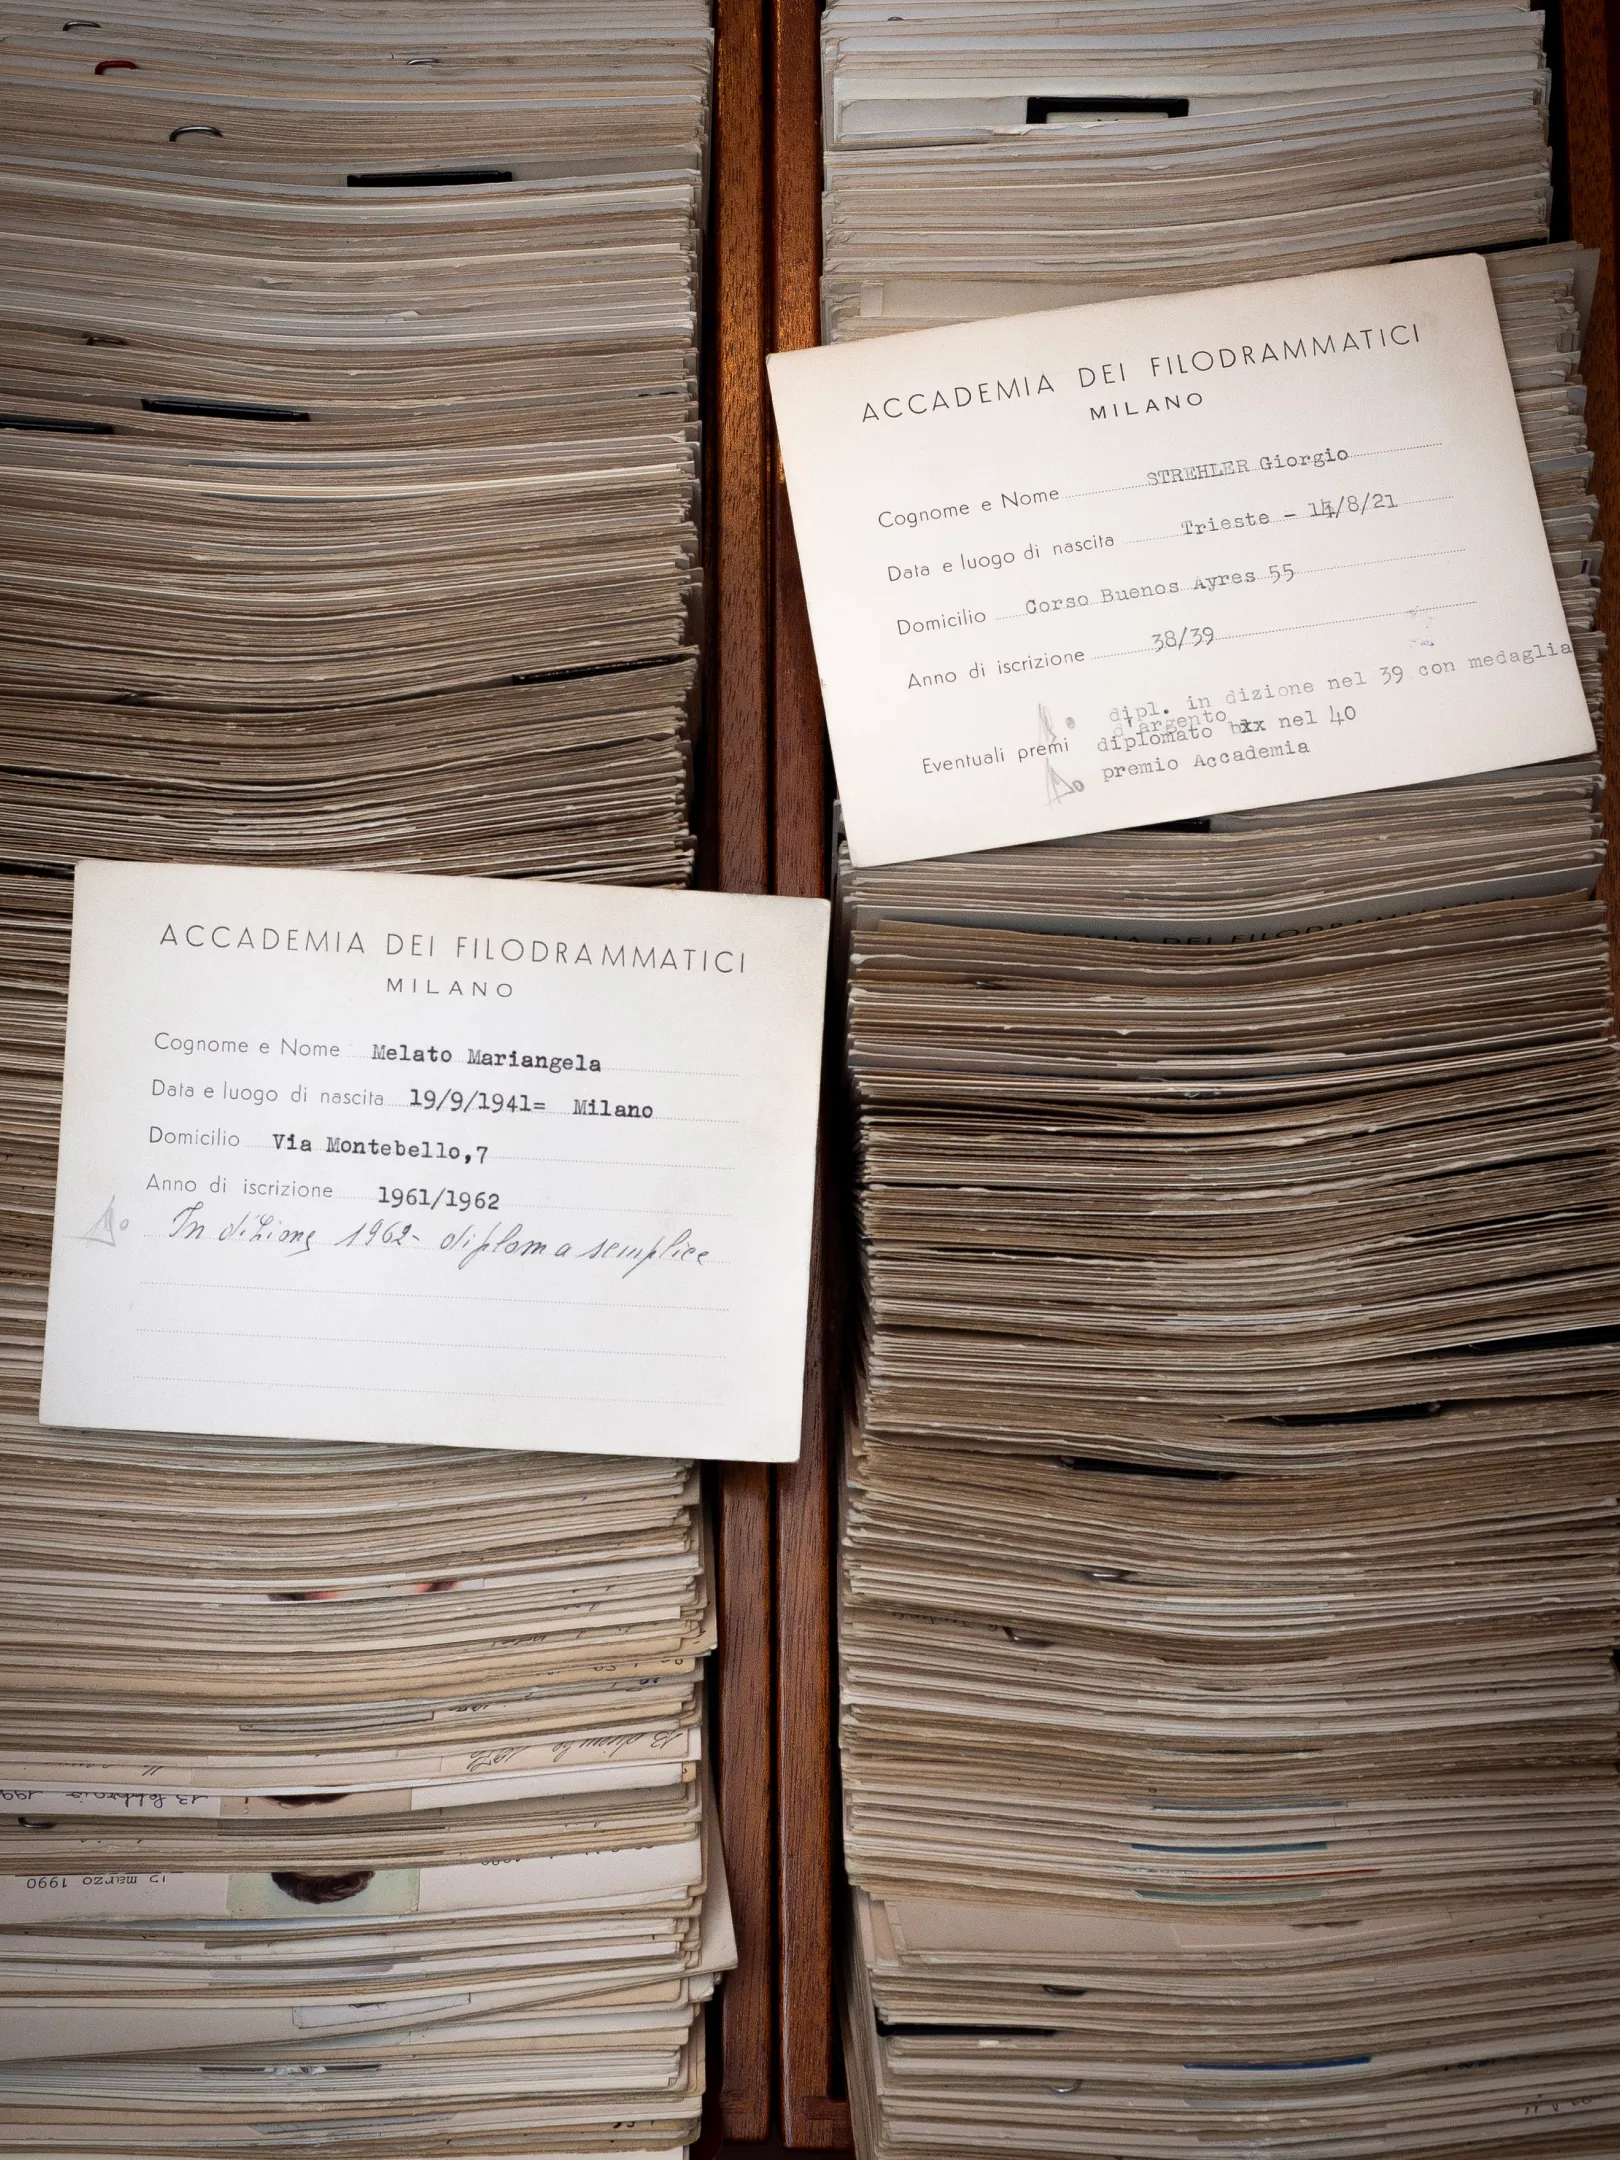 ACCADEMIA DEI FILODRAMMATICI
MILANO
Cognome e Nome STREHLER Giorgio
Data e luogo di nascita Trieste - 14/8/21
Domicilio Corso Buenos Ayres 55
Anno di iscrizione 38/39
dipl. in dizione nel 39 con medaglia
d'argento
Eventuali premi diplomato nel 40
premio Accademia
ACCADEMIA DEI FILODRAMMATICI
MILANO
Cognome e Nome Melato Mariangela
Data e luogo di nascita 19/9/1941= Milano
Domicilio Via Montebello,7
Anno di iscrizione 1961/1962
In dizione 1962- diploma semplice
ACCADEMIA DEI FILODRAMMATICI
13 dicembre
13 febbraio 199
15 marzo 1990